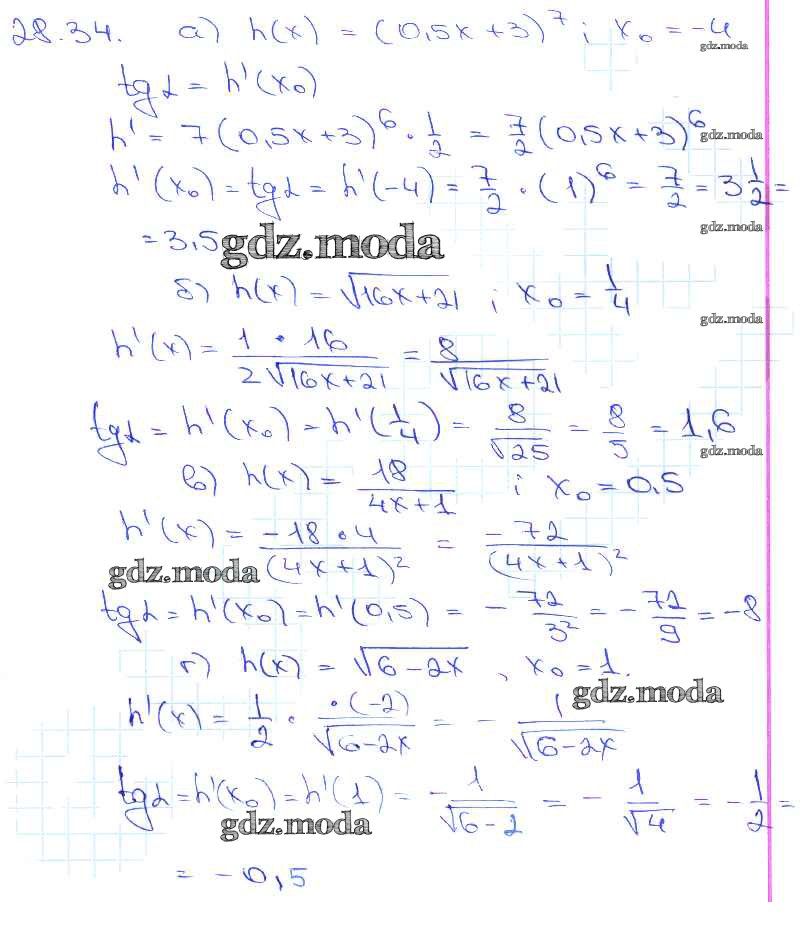 28.34. а) h(x) = (0,5x+3)^7 ; x₀ = -4
gdz.moda
tg α = h'(x₀)
h' = 7(0,5x+3)^6 · 1/2 = 7/2 (0,5x+3)^6
gdz.moda
h'(x₀) = tg α = h'(-4) = 7/2 · (1)^6 = 7/2 = 3 1/2 =
gdz.moda
= 3,5
gdz.moda
б) h(x) = √(16x+21) ; x₀ = 1/4
gdz.moda
h'(x) = (1 · 16)/(2√(16x+21)) = 8/√(16x+21)
tg α = h'(x₀) = h'(1/4) = 8/√25 = 8/5 = 1,6
gdz.moda
в) h(x) = 18/(4x+1) ; x₀ = 0,5
h'(x) = (-18 · 4)/(4x+1)² = (-72)/(4x+1)²
gdz.moda
tg α = h'(x₀) = h'(0,5) = - 72/3² = - 72/9 = -8
г) h(x) = √(6-2x) , x₀ = 1.
gdz.moda
h'(x) = 1/2 · (·(-2))/√(6-2x) = - 1/√(6-2x)
tg α = h'(x₀) = h'(1) = - 1/√(6-2) = - 1/√4 = - 1/2 =
gdz.moda
= -0,5